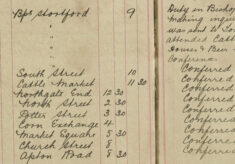 Bps Stortford 9
South Street 10
Cattle Market 11 30
Northgate End 12 30
North Street 2 30
Potter Street 3 30
Corn Exchange 4
Market Square 5 30
Church Street 8
Apton Road 8 30
Duty in Bishop
making inqui
was sent to
attended Catt
House & Beer
Conferenc
Conferred
Conferred
Conferred
Conferred
Conferred
Conferred
Conferred
Conferred